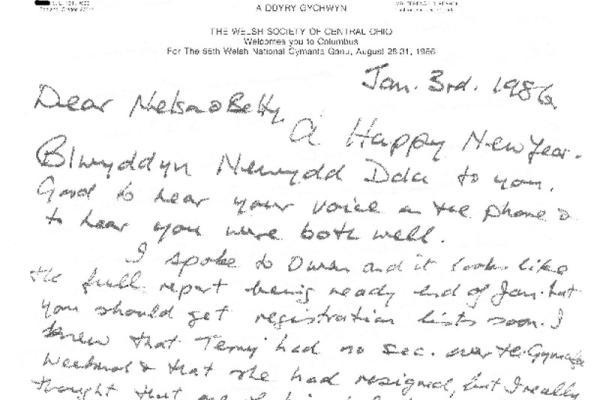 A DDYRY GYCHWYN
THE WELSH SOCIETY OF CENTRAL OHIO
Welcomes you to Columbus
For The 55th Welsh National Gymanfa Ganu, August 28-31, 1986
Jan. 3rd. 1986
Dear Nelson & Betty,
A Happy New Year.
Blwyddyn Newydd Dda to you.
Good to hear your voice on the phone &
to hear you were both well.
I spoke to Owen and it looks like
the full report being ready end of Jan. but
you should get registration lists soon. I
knew that Terry had no sec. over the Gymanfa
Weekend & that she had resigned, but I really
thought that one